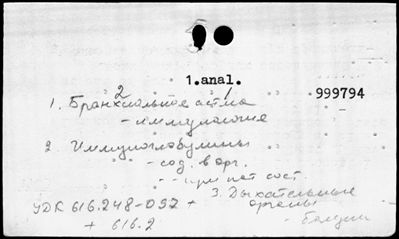 1.anal.
2 1
999794
1. Бронхиальная астма
- иммунология
2. Иммуноглобулины
- сод. в орг.
-- при пат. сост.
3. Дыхательные
органы
УДК 616.248-097 +
+ 616.2